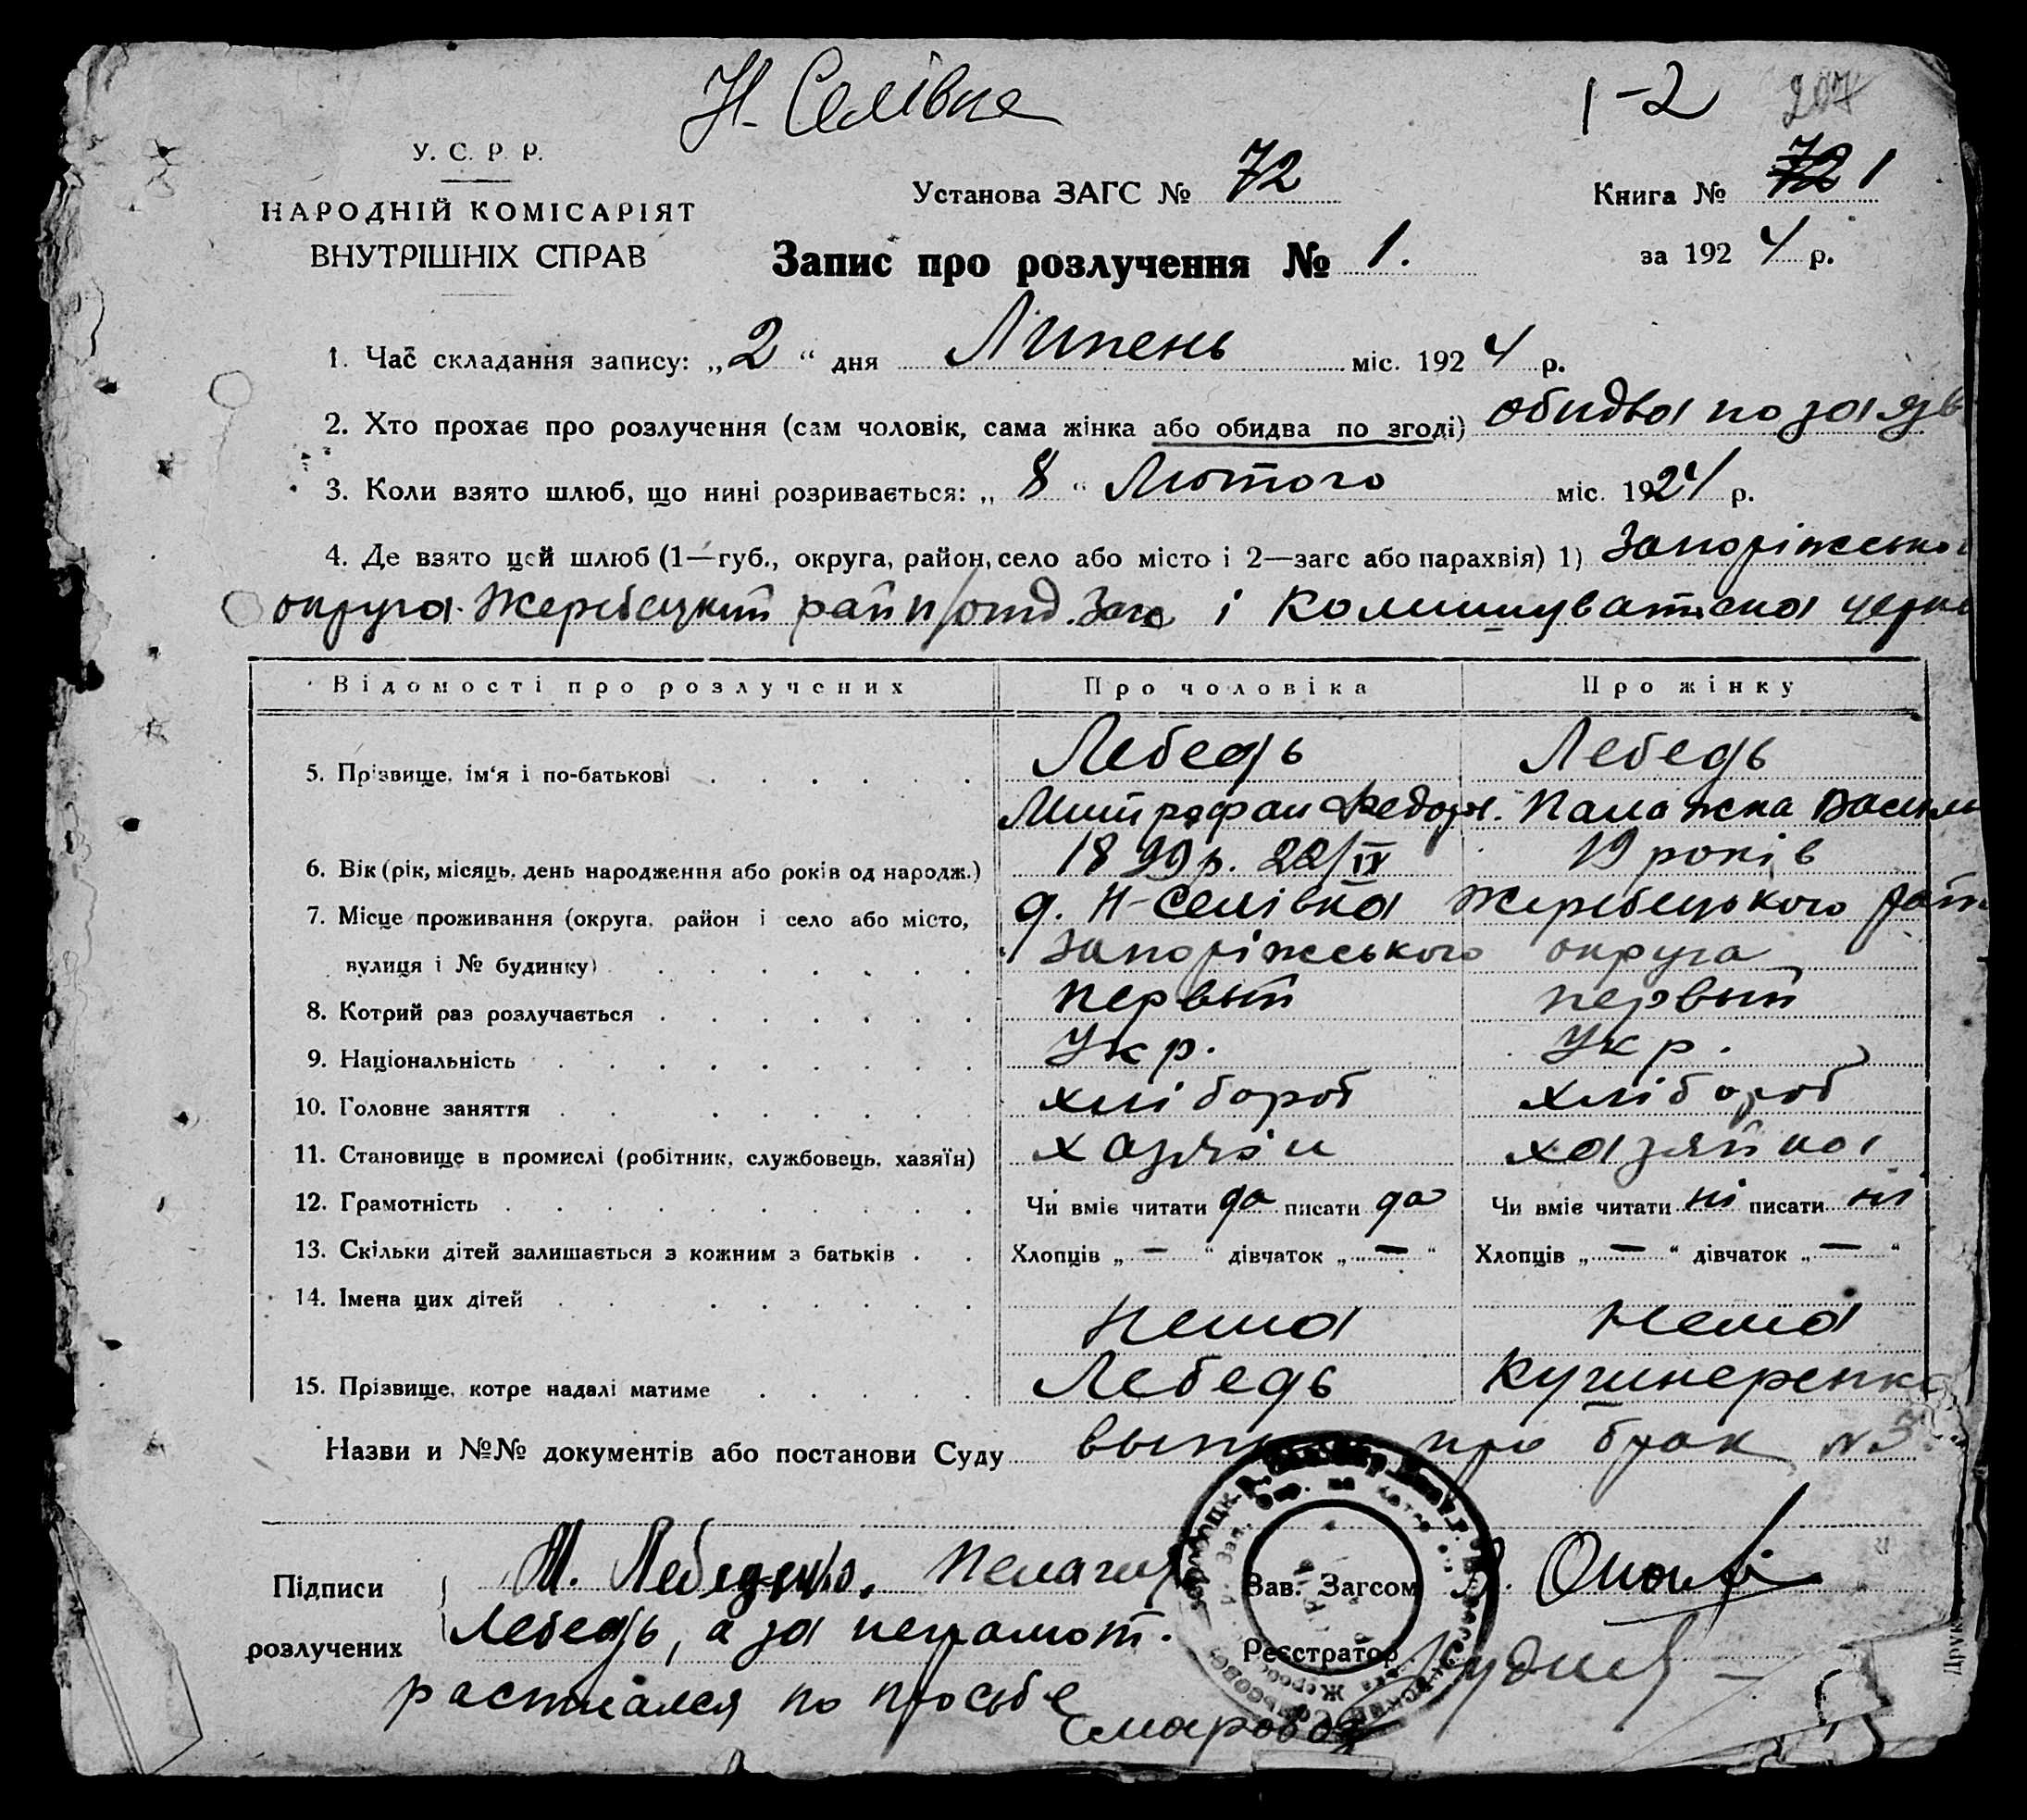 Н-Селівка
1-2 207
У. С. Р. Р.
Установа ЗАГС № 72
Книга № 72 1
НАРОДНІЙ КОМІСАРІЯТ
ВНУТРІШНІХ СПРАВ
Запис про розлучення № 1.
за 1924 р.
1. Час складання запису: „2“ дня Липень міс. 1924 р.
2. Хто прохає про розлучення (сам чоловік, сама жінка або обидва по згоді) обидва по заяв
3. Коли взято шлюб, що нині розривається: „8“ Лютого міс. 1924 р.
4. Де взято цей шлюб (1—губ., округа, район, село або місто і 2—загс або парахвія) 1) Запоріжської
округа Жеребецкий район п/отд. Загс і
Відомості про розлучених Про чоловіка Про жінку
5. Прізвище, ім‘я і по-батькові Лебедь Лебедь
Митрофан Федор. Палажка Васили
6. Вік (рік, місяць, день народження або років од народж.) 1899 р. 22/IV 19 років
7. Місце проживання (округа, район і село або місто, д. Н-Селівка Жеребецького район
вулиця і № будинку) Запоріжського округа
8. Котрий раз розлучається первый первый
9. Національність Укр. Укр.
10. Головне заняття хлібороб хлібороб
11. Становище в промислі (робітник, службовець, хазяїн) хазяін хазяйка
12. Грамотність Чи вміє читати да писати да Чи вміє читати ні писати ні
13. Скільки дітей залишається з кожним з батьків Хлопців „—“ дівчаток „—“ Хлопців „—“ дівчаток „—“
14. Імена цих дітей
нема нема
15. Прізвище, котре надалі матиме Лебедь
Назви и №№ документів або постанови Суду про брак №3
Підписи
розлучених
М. Пелагия
Зав. Загсом
Лебедь, а за неграмот.
Реєстратор
расписался по просьбе
Друк